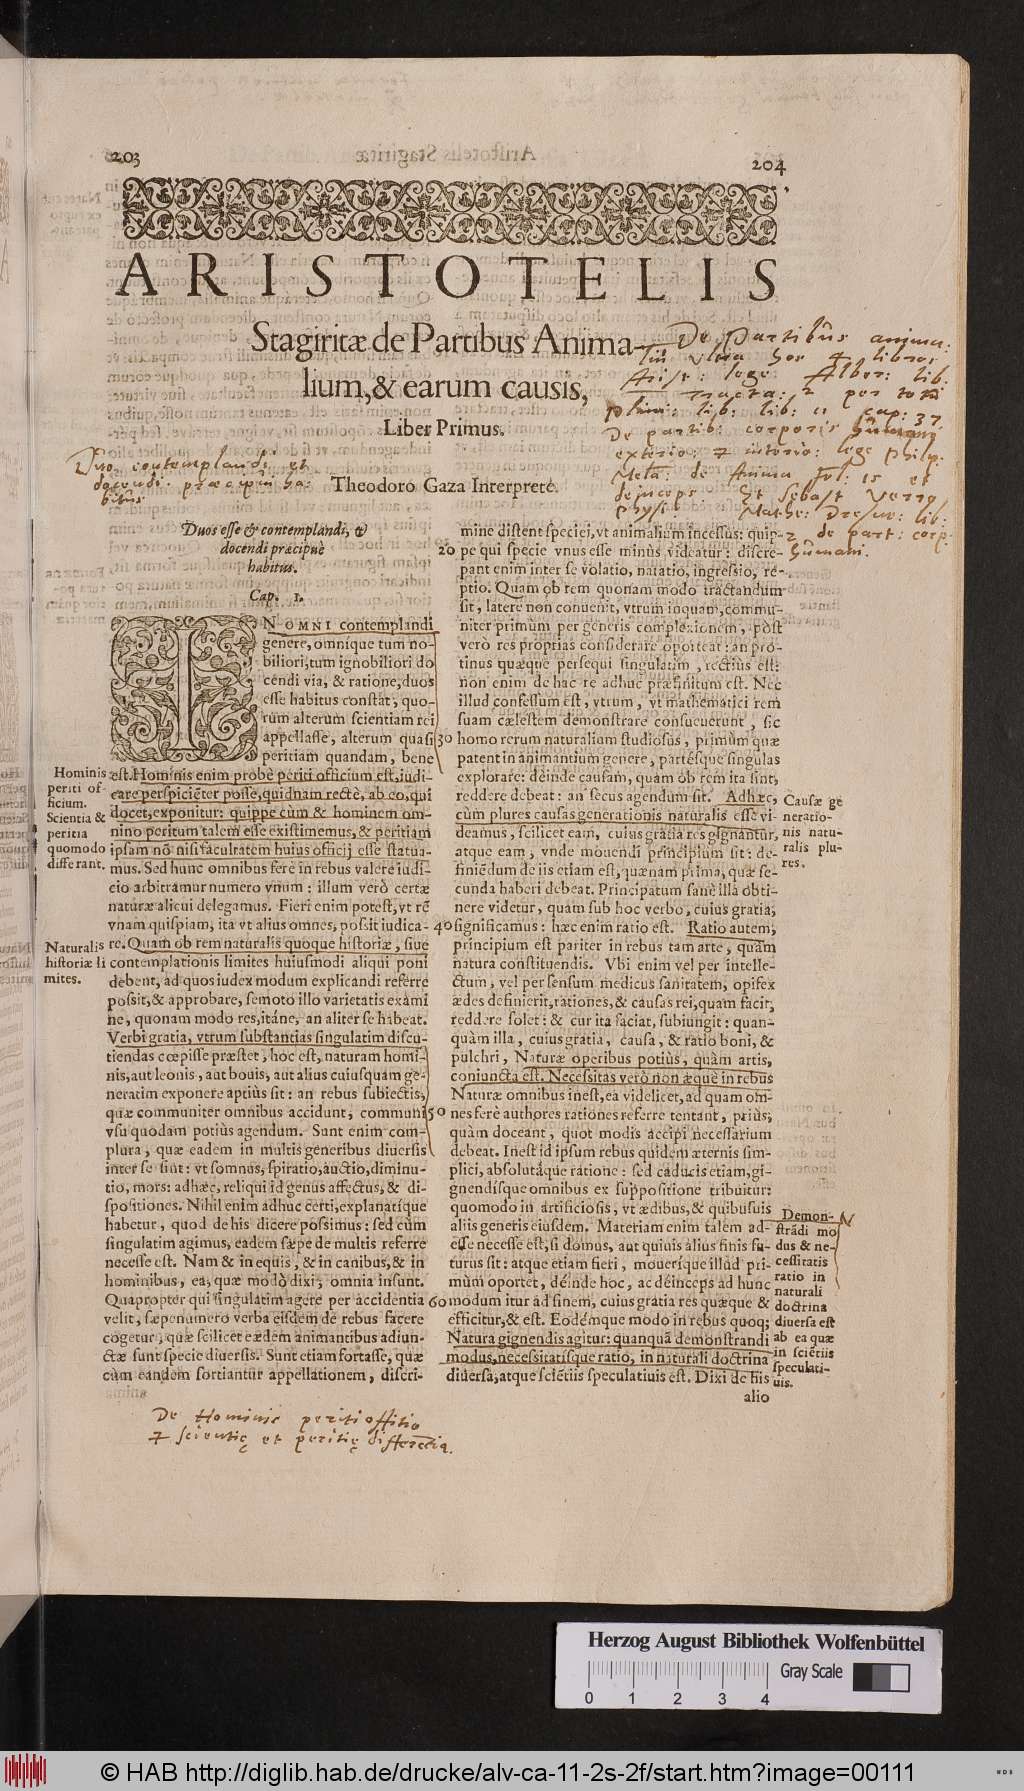 203
204
ARISTOTELIS
Stagiritæ de Partibus Anima-
lium, & earum causis,
Liber Primus.
Theodoro Gaza Interprete.
De Partibus anima:
lib.
Alber: lib.
per totũ
plini: lib: lib: 11 cap: 37.
De partib: corporis humani
exterio: & interio: lege Philip.
Mela: de Anima fol: 15 et
deinceps. Et Sebast Verro
Physic Mathe: Dresser: lib:
2 de part: corp:
humani.
Duo contemplandi et
docendi præcipui ha-
bitus
Duos esse & contemplandi, &
docendi præcipuè
habitus.
Cap. 1.
IN OMNI contemplandi
genere, omníque tum no-
biliori, tum ignobiliori do
cendi via, & ratione, duos
esse habitus constat, quo-
rum alterum scientiam rei
appellasse, alterum quasi
peritiam quandam, bene
est. Hominis enim probè periti officium est, iudi-
care perspiciẽter posse, quidnam rectè, ab eo, qui
docet, exponitur: quippe cùm & hominem om-
nino peritum talem esse existimemus, & peritiam
ipsam nõ nisi facultatem huius officij esse statua-
mus. Sed hunc omnibus ferè in rebus valere iudi-
cio arbitramur numero vnum: illum verò certæ
naturæ alicui delegamus. Fieri enim potest, vt rẽ
vnam quispiam, ita vt alius omnes, possit iudica-
re. Quam ob rem naturalis quoque historiæ, siue
contemplationis limites huiusmodi aliqui poni
debent, ad quos iudex modum explicandi referre
possit, & approbare, semoto illo varietatis exami
ne, quonam modo res, itáne, an aliter se habeat.
Verbi gratia, vtrum substantias singulatim discu-
tiendas cœpisse præstet, hoc est, naturam homi-
nis, aut leonis, aut bouis, aut alius cuiusquam ge-
neratim exponere aptiùs sit: an rebus subiectis,
quæ communiter omnibus accidunt, communi
vsu quodam potiùs agendum. Sunt enim com-
plura, quæ eadem in multis generibus diuersis
inter se sint: vt somnus, spiratio, auctio, diminu-
tio, mors: adhæc, reliqui id genus affectus, & di-
spositiones. Nihil enim adhuc certi, explanatíque
habetur, quod de his dicere possimus: sed cùm
singulatim agimus, eadem sæpe de multis referre
necesse est. Nam & in equis, & in canibus, & in
hominibus, ea, quæ modò dixi, omnia insunt.
Quapropter qui singulatim agere per accidentia
velit, sæpenumero verba eisdem de rebus facere
cogetur, quæ scilicet eædem animantibus adiun-
ctæ sunt specie diuersis. Sunt etiam fortasse, quæ
cùm eandem sortiantur appellationem, discri-
Hominis
periti of-
ficium.
Scientia &
peritia
quomodo
differant.
Naturalis
historiæ li
mites.
mine distent speciei, vt animalium incessus: quip-
20 pe qui specie vnus esse minùs videatur: discre-
pant enim inter se volatio, natatio, ingressio, re-
ptio. Quam ob rem quonam modo tractandum
sit, latere non conuenit, vtrum inquam, commu-
niter primùm per generis complexionem, pòst
verò res proprias considerare oporteat: an pro-
tinus quæque persequi singulatim, rectius est:
non enim de hac re adhuc præfinitum est. Nec
illud confessum est, vtrum, vt mathematici rem
suam cælestem demonstrare consueuerunt, sic
30 homo rerum naturalium studiosus, primùm quæ
patent in animantium genere, partésque singulas
explorare: déinde causam, quam ob rem ita sint,
reddere debeat: an secus agendum sit. Adhæc,
cùm plures causas generationis naturalis esse vi-
deamus, scilicet eam, cuius gratia res gignantur,
atque eam, vnde mouendi principium sit: de-
finiẽdum de iis etiam est, quænam prima, quæ se-
cunda haberi debeat. Principatum sanè illa obti-
nere videtur, quam sub hoc verbo, cuius gratia,
40 significamus: hæc enim ratio est. Ratio autem,
principium est pariter in rebus tam arte, quàm
natura constituendis. Vbi enim vel per intelle-
ctum, vel per sensum medicus sanitatem, opifex
ædes definierit, rationes, & causas rei, quam facit,
reddere solet: & cur ita faciat, subiungit: quan-
quàm illa, cuius gratia, causa, & ratio boni, &
pulchri, Naturæ operibus potiùs, quàm artis,
coniuncta est. Necessitas verò non æquè in rebus
Naturæ omnibus inest, ea videlicet, ad quam om-
50 nes ferè authores rationes referre tentant, priùs,
quàm doceant, quot modis accipi necessarium
debeat. Inest id ipsum rebus quidem æternis sim-
plici, absolutáque ratione: sed caducis etiam, gi-
gnendísque omnibus ex suppositione tribuitur:
quomodo in artificiosis, vt ædibus, & quibusuis
aliis generis eiusdem. Materiam enim talem ad-
esse necesse est, si domus, aut quiuis alius finis fu-
turus sit: atque etiam fieri, mouerique illud pri-
mùm oportet, déinde hoc, ac déinceps ad hunc
60 modum itur ad finem, cuius gratia res quæque &
efficitur, & est. Eodémque modo in rebus quoq;
Natura gignendis agitur: quanquã demonstrandi
modus, necessitatisque ratio, in naturali doctrina
diuersa, atque sciẽtiis speculatiuis est. Dixi de his
alio
Causæ ge
neratio-
nis natu-
ralis plu-
res.
Demon-
strãdi mo
dus & ne-
cessitatis
ratio in
naturali
doctrina
diuersa est
ab ea quæ
in sciẽtiis
speculati-
uis.
De Hominis periti offitio
& scientię et peritię differẽtia.
Herzog August Bibliothek Wolfenbüttel
Gray Scale
0 1 2 3 4
© HAB http://diglib.hab.de/drucke/alv-ca-11-2s-2f/start.htm?image=00111